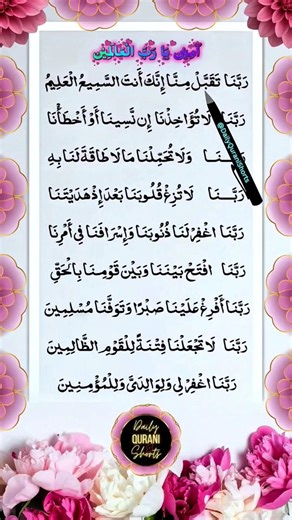 آمِين يَا رَبَّ العَالَمِيْن
رَبَّنَا تَقَبَّلْ مِنَّا إِنَّكَ أَنتَ السَّمِيعُ الْعَلِيمُ
رَبَّنَا لَا تُؤَاخِذْنَا إِن نَّسِينَا أَوْ أَخْطَأْنَا
وَلَا تُحَمِّلْنَا مَا لَا طَاقَةَ لَنَا بِهِ
رَبَّنَا لَا تُزِغْ قُلُوبَنَا بَعْدَ إِذْ هَدَيْتَنَا
رَبَّنَا اغْفِرْ لَنَا ذُنُوبَنَا وَإِسْرَافَنَا فِي أَمْرِنَا
رَبَّنَا افْتَحْ بَيْنَنَا وَبَيْنَ قَوْمِنَا بِالْحَقِّ
رَبَّنَا أَفْرِغْ عَلَيْنَا صَبْرًا وَتَوَفَّنَا مُسْلِمِينَ
رَبَّنَا لَا تَجْعَلْنَا فِتْنَةً لِلْقَوْمِ الظَّالِمِينَ
رَبَّنَا اغْفِرْ لِي وَلِوَالِدَيَّ وَلِلْمُؤْمِنِينَ
@DailyQuraniShorts
Daily
QURANI
Shorts